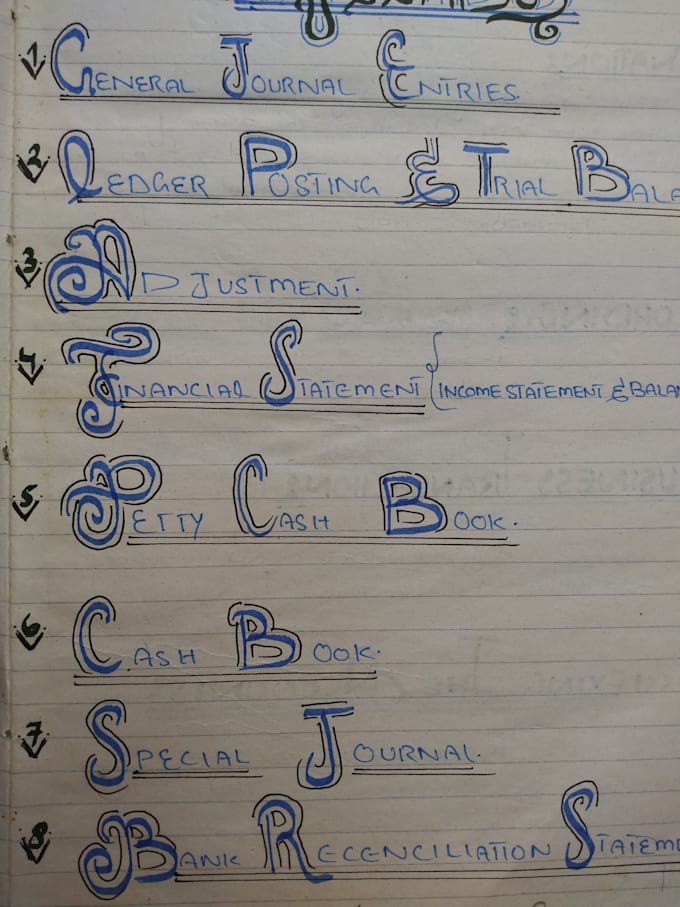 1 GENERAL JOURNAL ENTRIES.
2 LEDGER POSTING & TRIAL BALA
3 ADJUSTMENT.
4 FINANCIAL STATEMENT { INCOME STATEMENT & BALAN
5 PETTY CASH BOOK.
6 CASH BOOK.
7 SPECIAL JOURNAL.
8 BANK RECENCILIATION STATEME